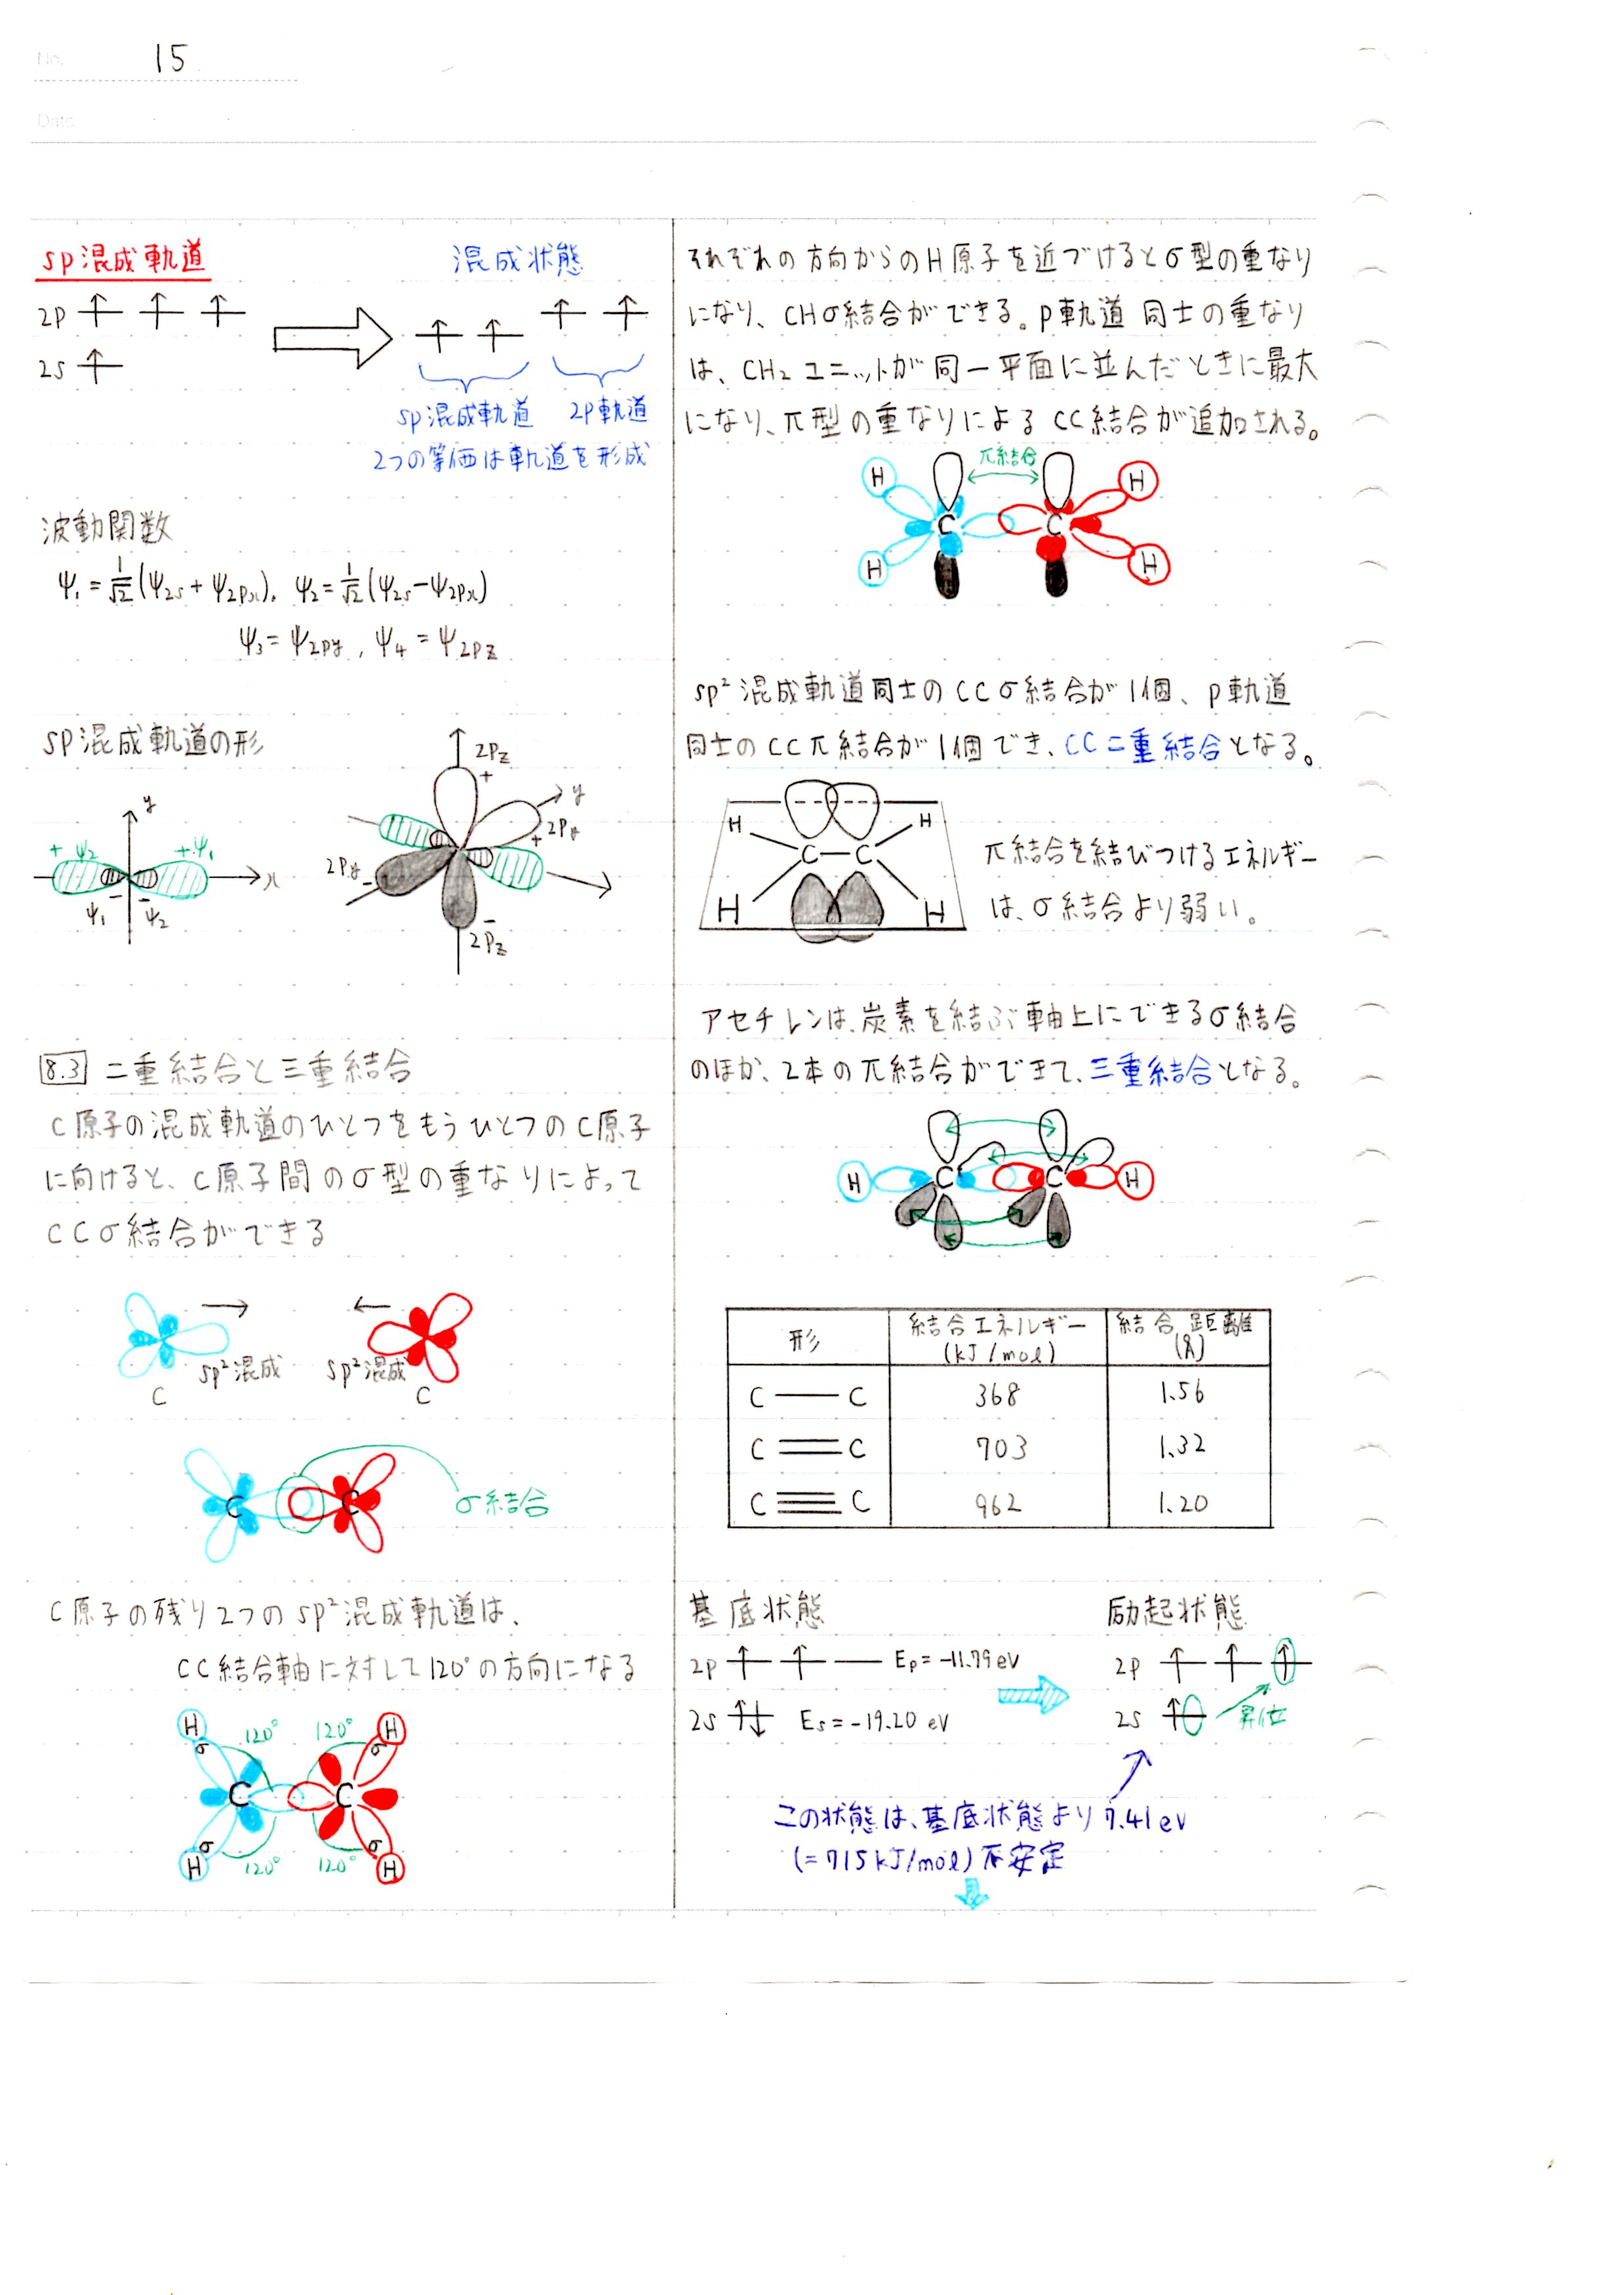 No. 15
Date
sp混成軌道
混成状態
2p
2s
sp混成軌道 2p軌道
2つの等価は軌道を形成
波動関数
ψ₁=1/√2(ψ2s+ψ2px), ψ₂=1/√2(ψ2s-ψ2px)
ψ₃=ψ2py, ψ₄=ψ2pz
sp混成軌道の形
y
+ ψ₂ + ψ₁
x
ψ₁ - - ψ₂
2pz
+
y
2py
+
2py
-
-
2pz
8.3 二重結合と三重結合
C原子の混成軌道のひとつをもうひとつのC原子
に向けると、C原子間のσ型の重なりによって
CCσ結合ができる
sp²混成 sp²混成
C C
C C
σ結合
C原子の残り2つのsp²混成軌道は、
CC結合軸に対して120°の方向になる
H 120° 120° H
σ σ
C C
σ σ
H 120° 120° H
それぞれの方向からのH原子を近づけるとσ型の重なり
になり、CHσ結合ができる。p軌道同士の重なり
は、CH₂ユニットが同一平面に並んだときに最大
になり、π型の重なりによるCC結合が追加される。
π結合
H H
C C
H H
sp²混成軌道同士のCCσ結合が1個、p軌道
同士のCCπ結合が1個でき、CC二重結合となる。
H H
C C
H H
π結合を結びつけるエネルギー
は、σ結合より弱い。
アセチレンは、炭素を結ぶ軸上にできるσ結合
のほか、2本のπ結合ができて、三重結合となる。
H C C H
形 結合エネルギー(kJ/mol) 結合距離(Å)
C—C 368 1.56
C=C 703 1.32
C≡C 962 1.20
基底状態
2p Ep=-11.79eV
2s Es=-19.20 eV
励起状態
2p
2s 昇位
この状態は、基底状態より7.41eV
(=715kJ/mol)不安定